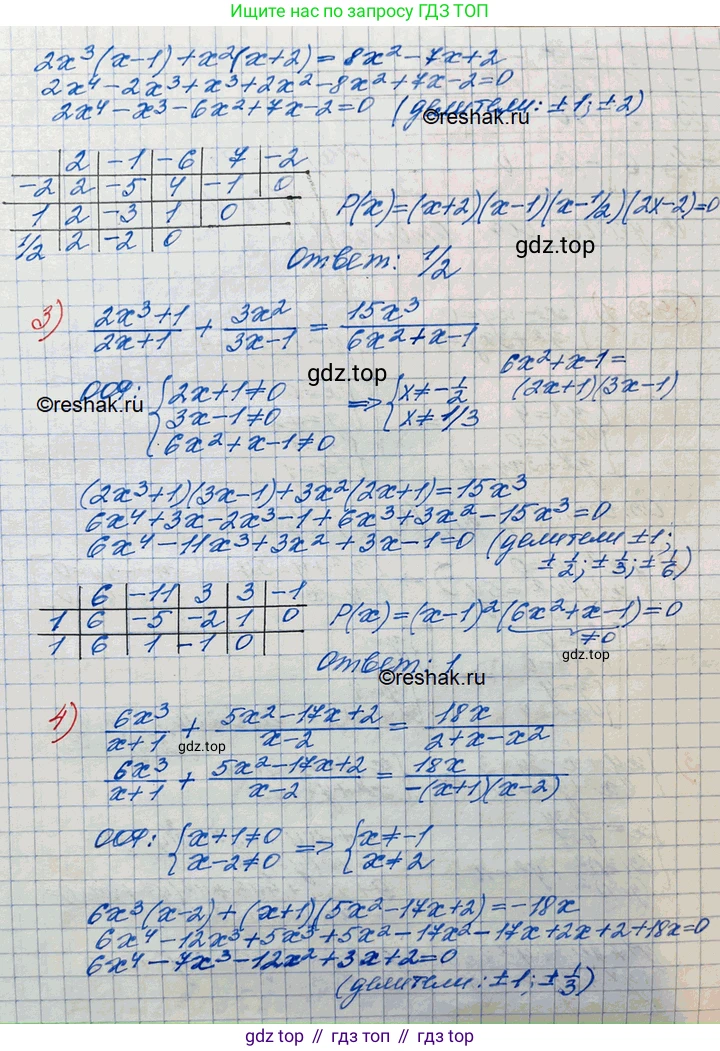 Ищите решения по запросу ГДЗ ТОП
2x³(x-1)+x²(x+2)=8x²-7x+2
2x⁴-2x³+x³+2x²-8x²+7x-2=0
2x⁴-x³-6x²+7x-2=0 (делители: ±1; ±2)
©reshak.ru
2 -1 -6 7 -2
-2 2 -5 4 -1 0
1 2 -3 1 0
1/2 2 -2 0
P(x)=(x+2)(x-1)(x-1/2)(2x-2)=0
gdz.top
Ответ: 1/2
3) (2x³+1)/(2x+1) + 3x²/(3x-1) = 15x³/(6x²+x-1)
6x²+x-1=
(2x+1)(3x-1)
gdz.top
©reshak.ru
ОДЗ: { 2x+1≠0
3x-1≠0
6x²+x-1≠0
=> { x≠-1/2
x≠1/3
(2x³+1)(3x-1)+3x²(2x+1)=15x³
6x⁴+3x-2x³-1+6x³+3x²-15x³=0
6x⁴-11x³+3x²+3x-1=0 (делители ±1;
±1/2; ±1/3; ±1/6)
6 -11 3 3 -1
1 6 -5 -2 1 0
1 6 1 -1 0
P(x)=(x-1)²(6x²+x-1)=0
≠0
gdz.top
Ответ: 1
©reshak.ru
4) 6x³/(x+1) + (5x²-17x+2)/(x-2) = 18x/(2+x-x²)
gdz.top
6x³/(x+1) + (5x²-17x+2)/(x-2) = 18x/(-(x+1)(x-2))
ОДЗ: { x+1≠0
x-2≠0
=> { x≠-1
x≠2
6x³(x-2)+(x+1)(5x²-17x+2)=-18x
6x⁴-12x³+5x³+5x²-17x²-17x+2x+2+18x=0
6x⁴-7x³-12x²+3x+2=0
(делители: ±1; ±1/3)
©reshak.ru
gdz top // гдз топ // гдз.top